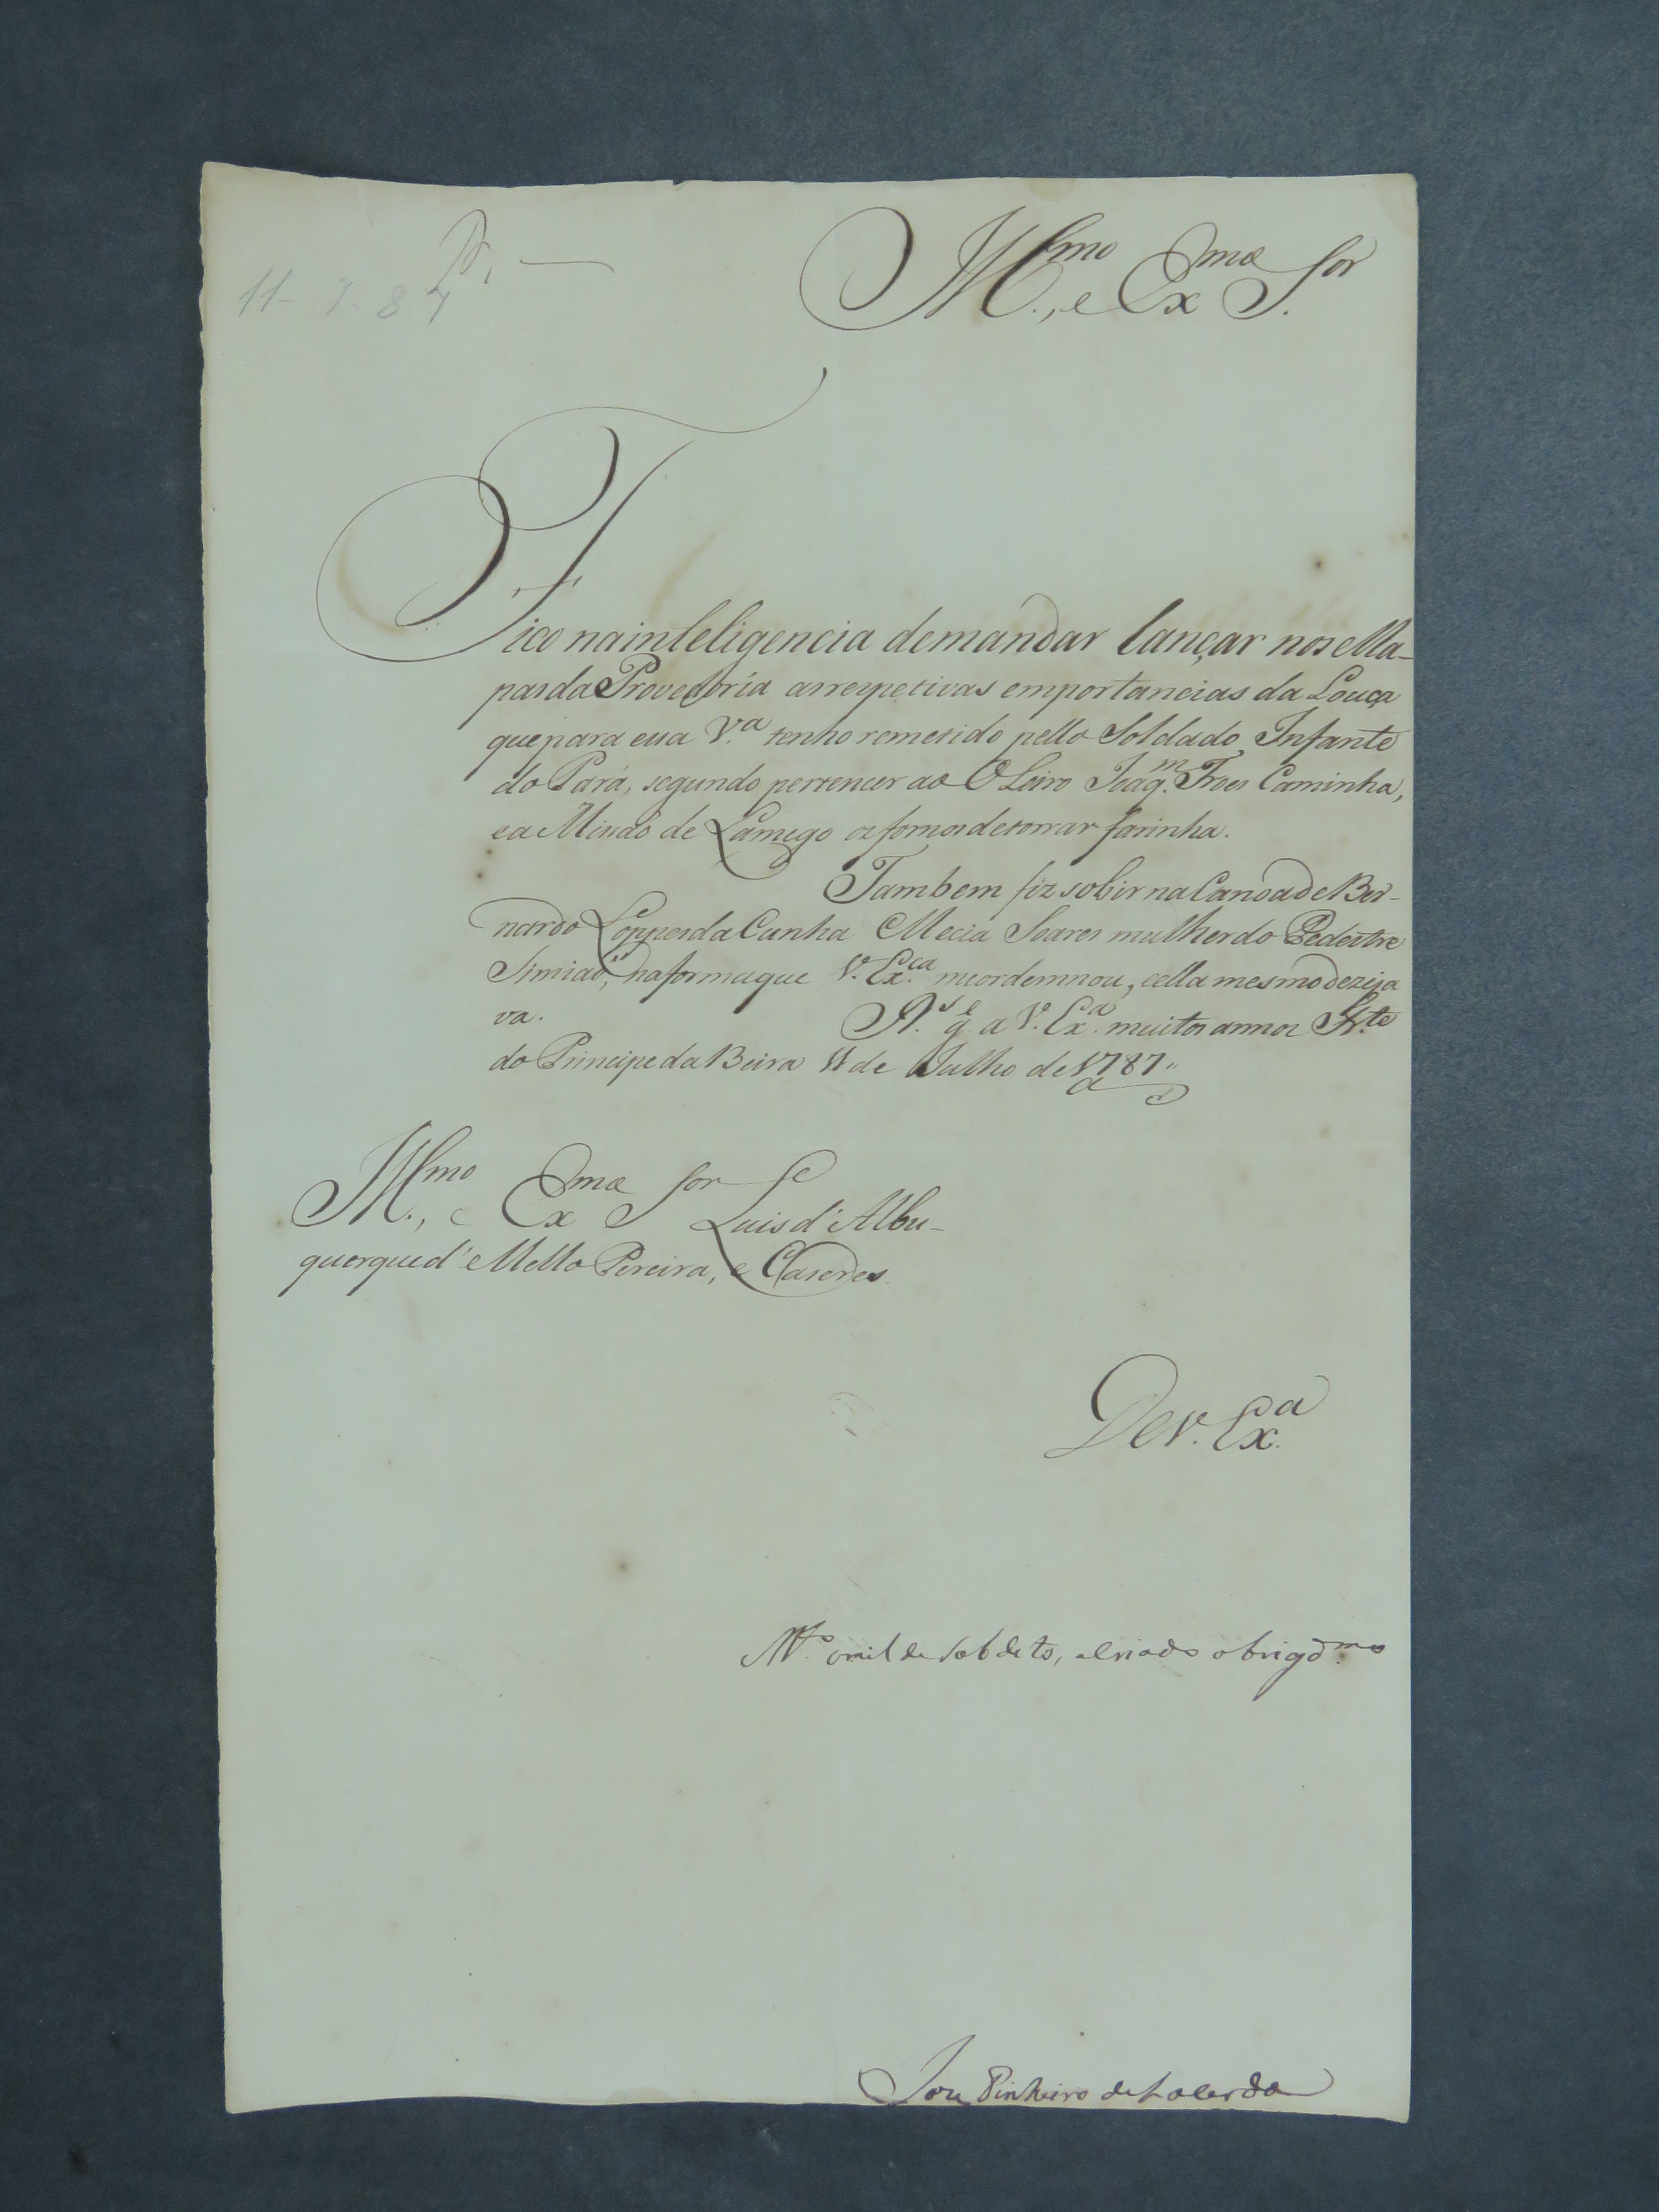 11-7-87
Ill.mo, e Ex.mo S.or
Fico na inteligencia de mandar lançar nos Ma-
pas da Provedoria as respetivas emportancias da Louça
que para essa V.a tenho remetido pello Soldado Infante
do Pará, segundo pertencer ao Oleiro Joaq.m Froes Caminha,
e a de Lamego os fornos de torrar farinha.
Tambem fiz sobir na Canoa de Ber-
nardo Loppes da Cunha Mecia Soares mulher do Pedestre
Simiaõ, na forma que V. Ex.ca me ordemnou, e ella mesmo dezija
va. D.s g.e a V. Ex.a muitos annos Fr.te
do Principe da Beira 11 de Julho de 1787
Ill.mo, e Ex.mo S.or Luis d'Albu-
querque d'Mello Pereira, e Caseres.
De V. Ex.a
M.to omilde Sobdeto, e Criado obrigd.mo
Joze Pinheiro de Lacerda